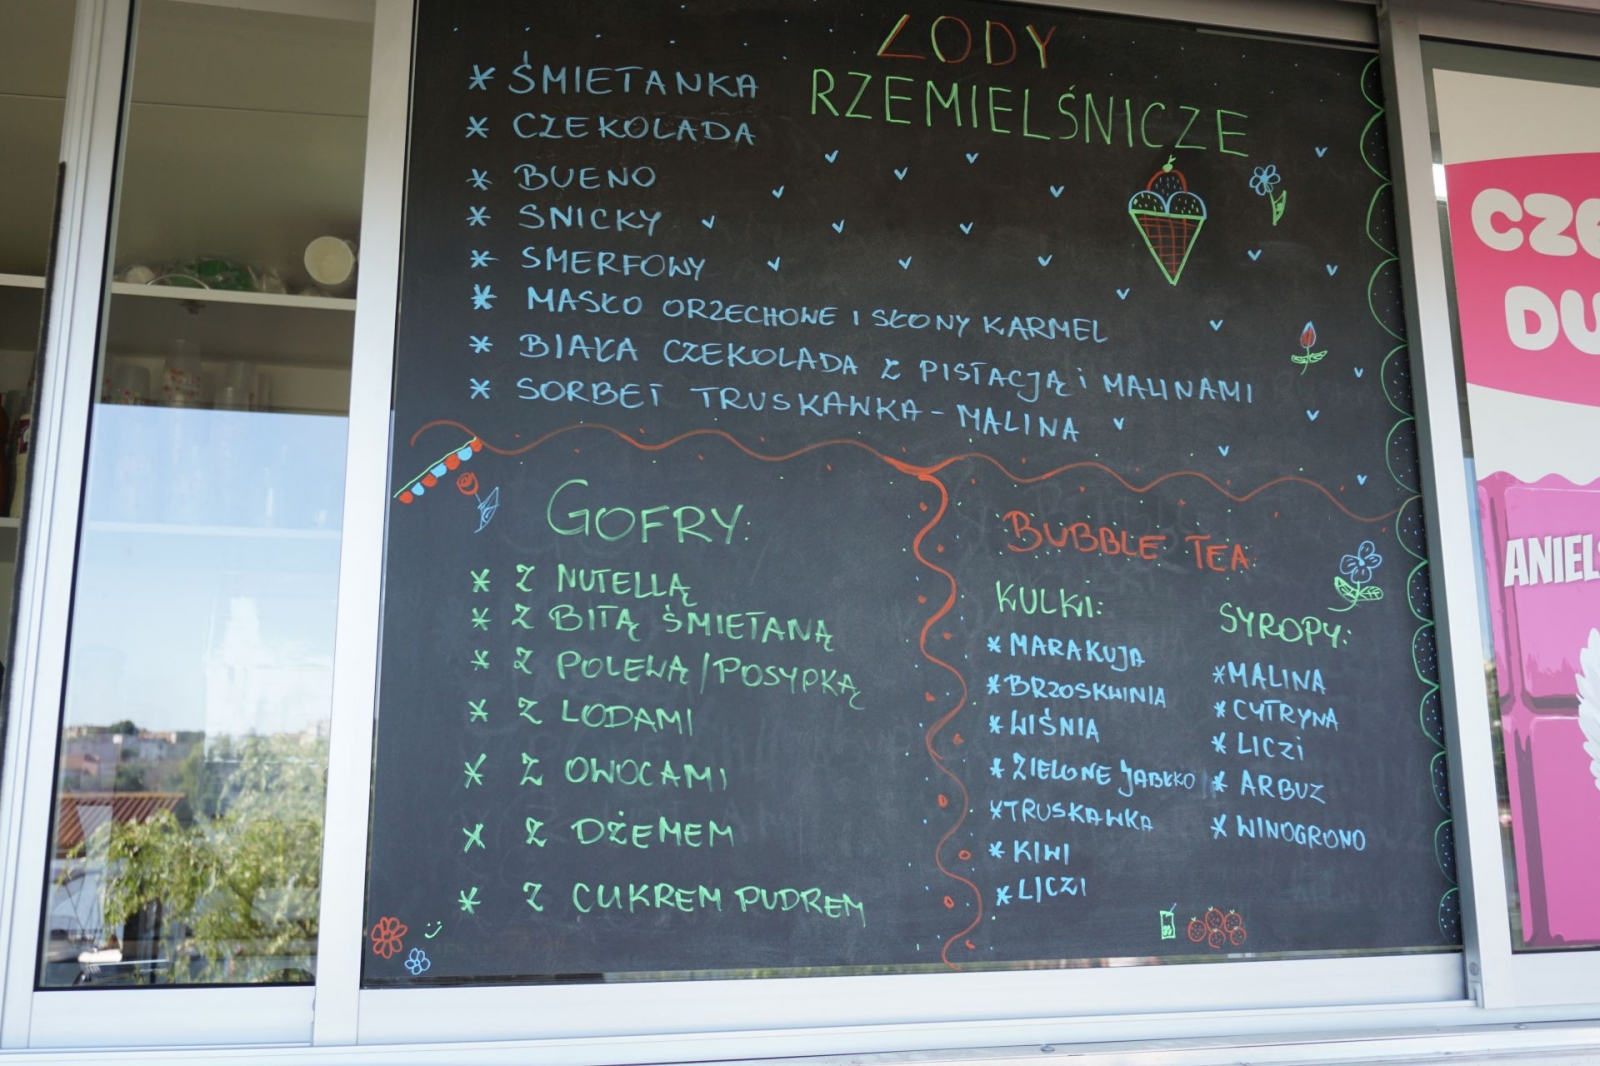 LODY
RZEMIELŚNICZE
* ŚMIETANKA
* CZEKOLADA
* BUENO
* SNICKY
* SMERFOWY
* MASŁO ORZECHOWE I SŁONY KARMEL
* BIAŁA CZEKOLADA Z PISTACJĄ i MALINAMI
* SORBET TRUSKAWKA - MALINA
GOFRY:
* Z NUTELLĄ
* Z BITĄ ŚMIETANĄ
* Z POLEWĄ/POSYPKĄ
* Z LODAMI
* Z OWOCAMI
* Z DŻEMEM
* Z CUKREM PUDREM
BUBBLE TEA:
KULKI:
* MARAKUJA
* BRZOSKWINIA
* WIŚNIA
* ZIELONE JABŁKO
* TRUSKAWKA
* KIWI
* LICZI
SYROPY:
* MALINA
* CYTRYNA
* LICZI
* ARBUZ
* WINOGRONO
CZE
DU
ANIEL